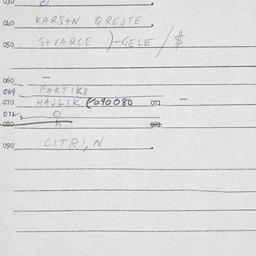 030
040 KARSTN GREJTE
050 STVARCE )-GELE /$
060 —
069 FARTIKS
070 HAJLIK (090080 071 —
072 O
080 K 081
090 CITRI,N